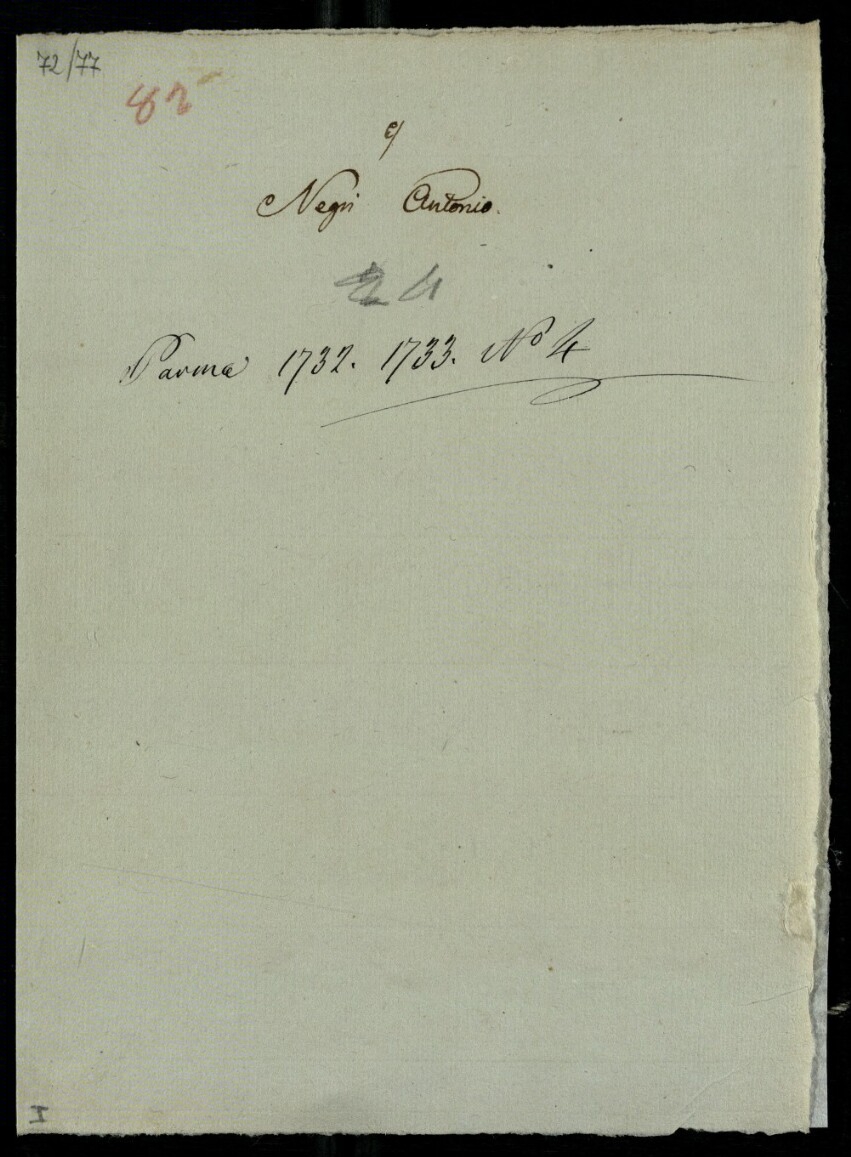 72/77
82
c/
Negri Antonio.
24
Parma 1732. 1733. No 4
I